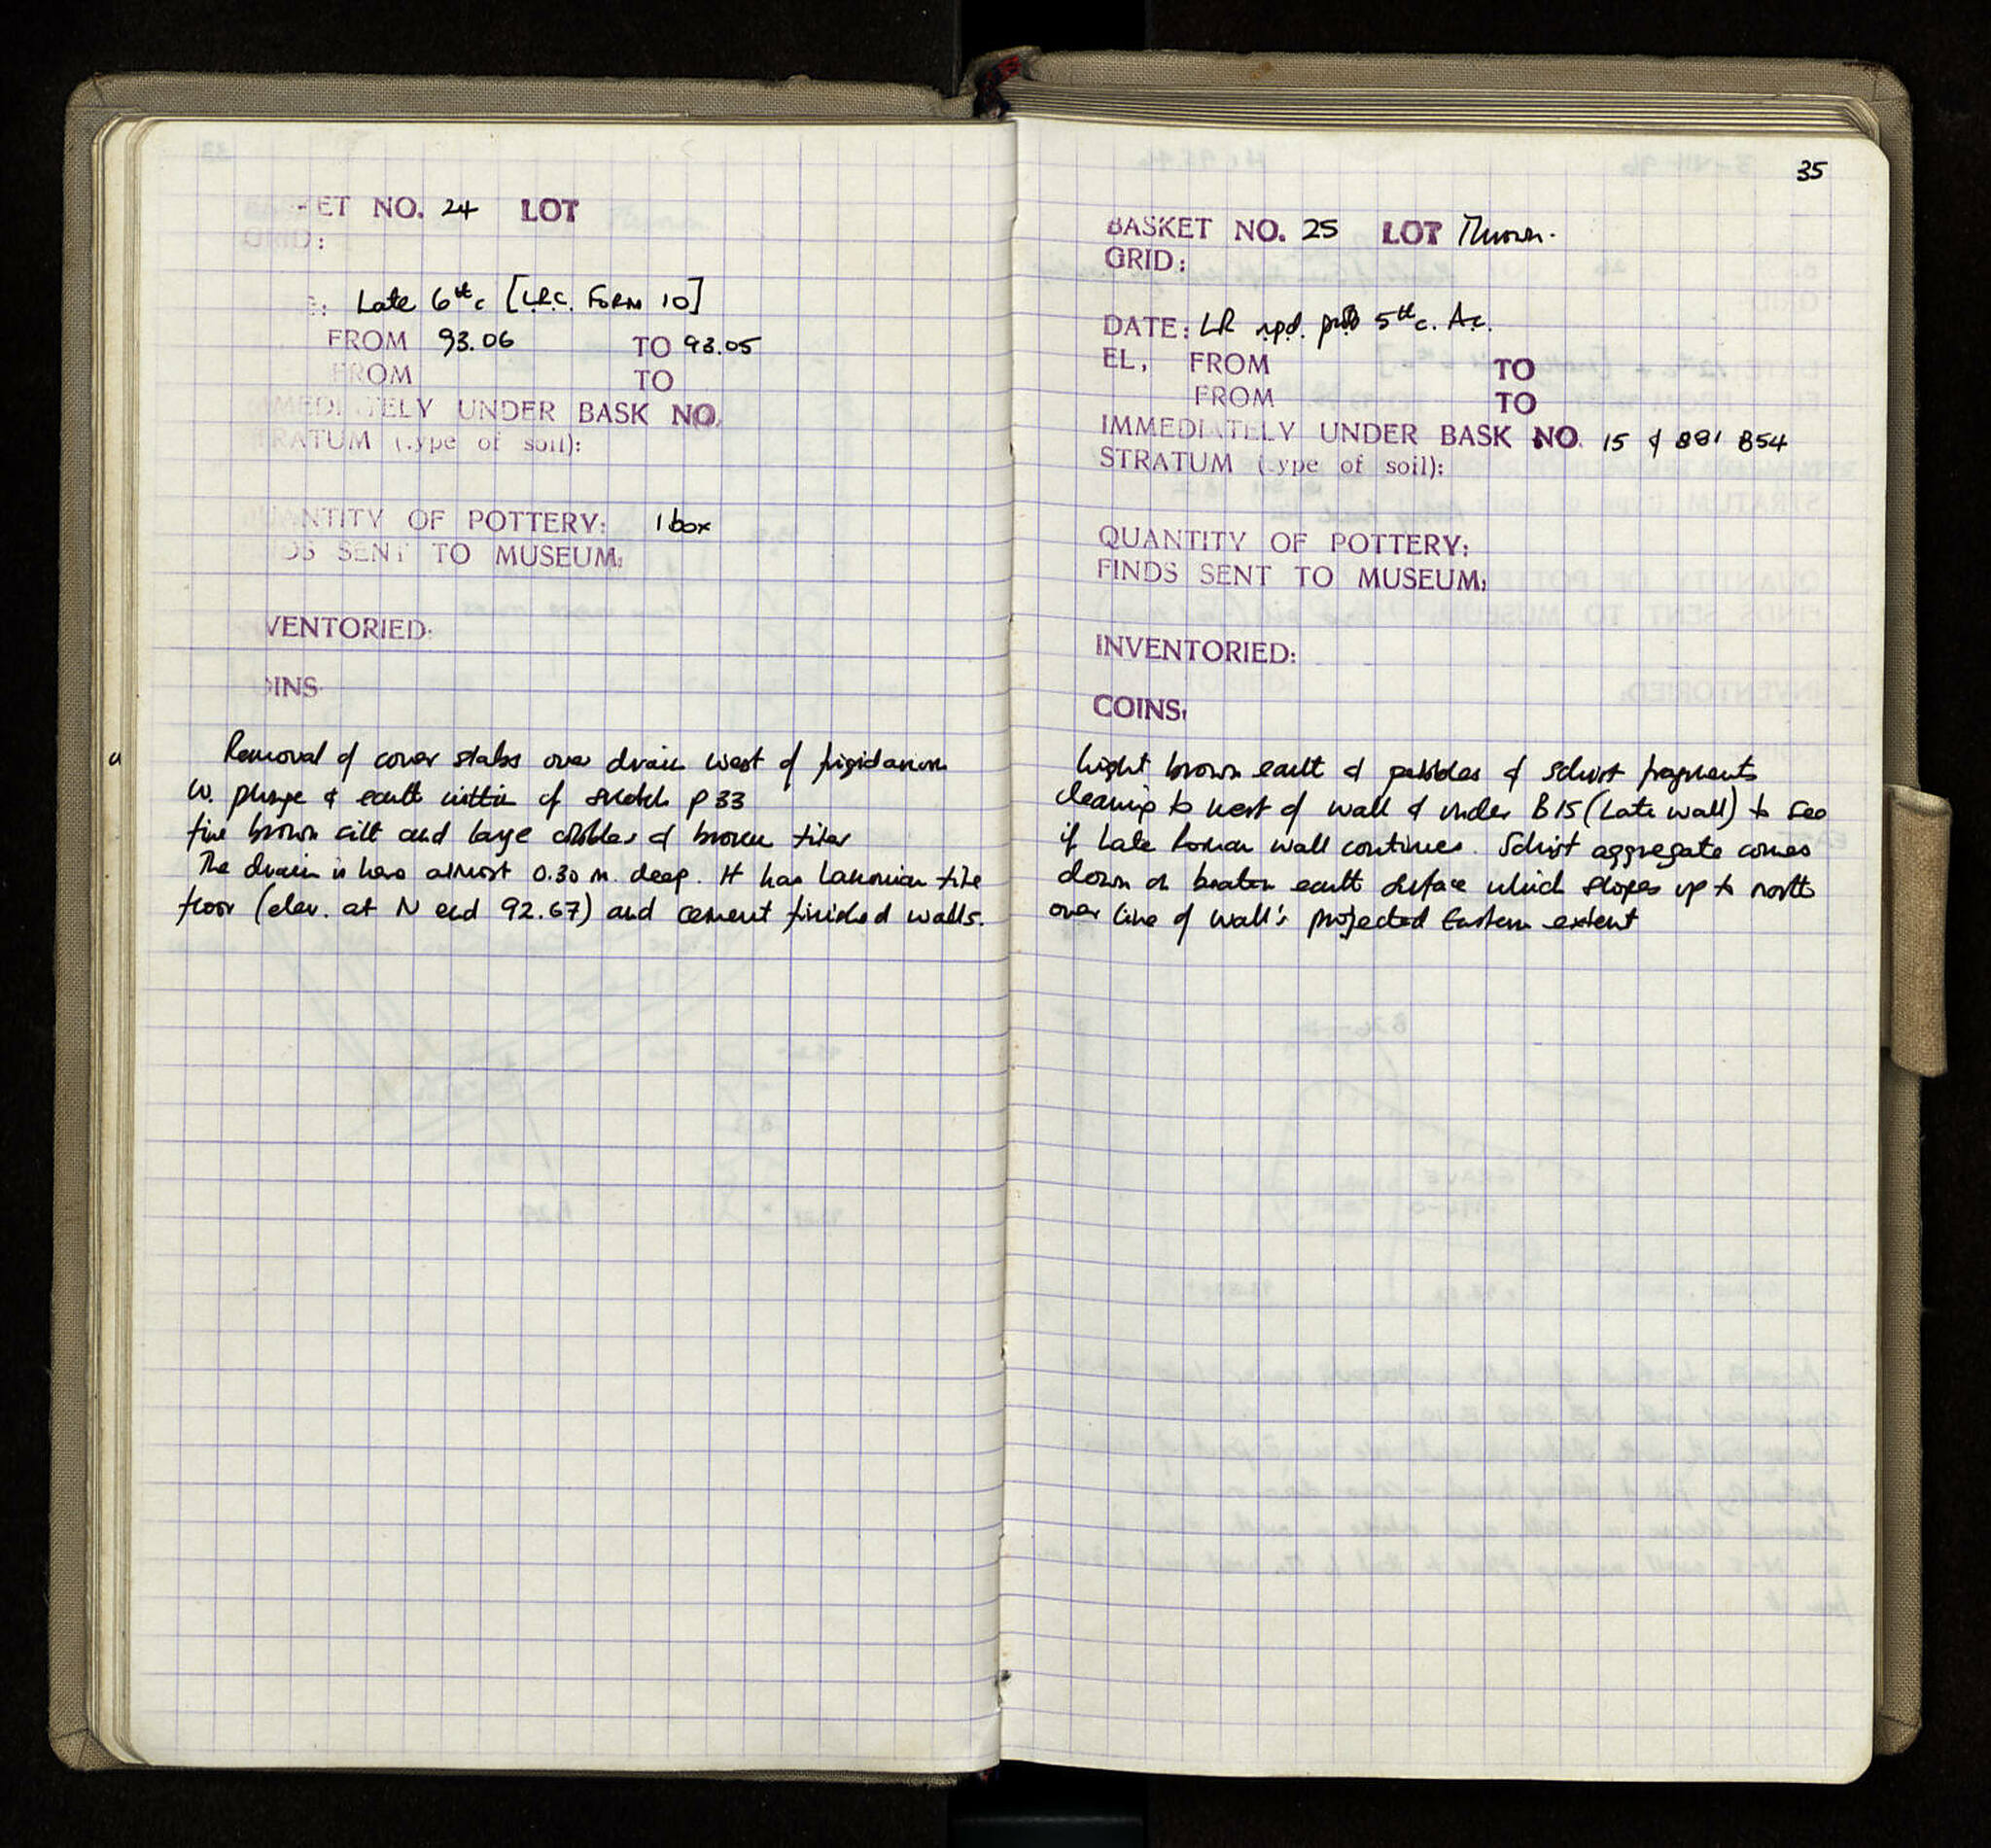 ET NO. 24 LOT
GRID:
: Late 6th c [L.R.C. FORM 10]
FROM 93.06 TO 93.05
FROM TO
IMMEDIATELY UNDER BASK NO.
STRATUM (.ype of soil):
QUANTITY OF POTTERY: 1 box
DS SENT TO MUSEUM:
VENTORIED:
OINS
Removal of cover slabs over drain west of frigidarium
W. plunge & earth within cf sketch p 33
fine brown silt and large cobbles & broken tiles
The drain is here almost 0.30 m. deep. It has Lakonian tile
floor (elev. at N end 92.67) and cement finished walls.
35
BASKET NO. 25 LOT Thrown.
GRID:
DATE: LR rpd. prob 5th c. Ac.
EL, FROM TO
FROM TO
IMMEDIATELY UNDER BASK NO. 15 & B81 B54
STRATUM (.ype of soil):
QUANTITY OF POTTERY:
FINDS SENT TO MUSEUM:
INVENTORIED:
COINS:
Light brown earth & pebbles & schist fragments
cleaning to west of wall & under B15 (Late wall) to see
if Late Roman wall continues. Schist aggregate comes
down on beaten earth surface which slopes up to north
over line of wall's projected Eastern extent